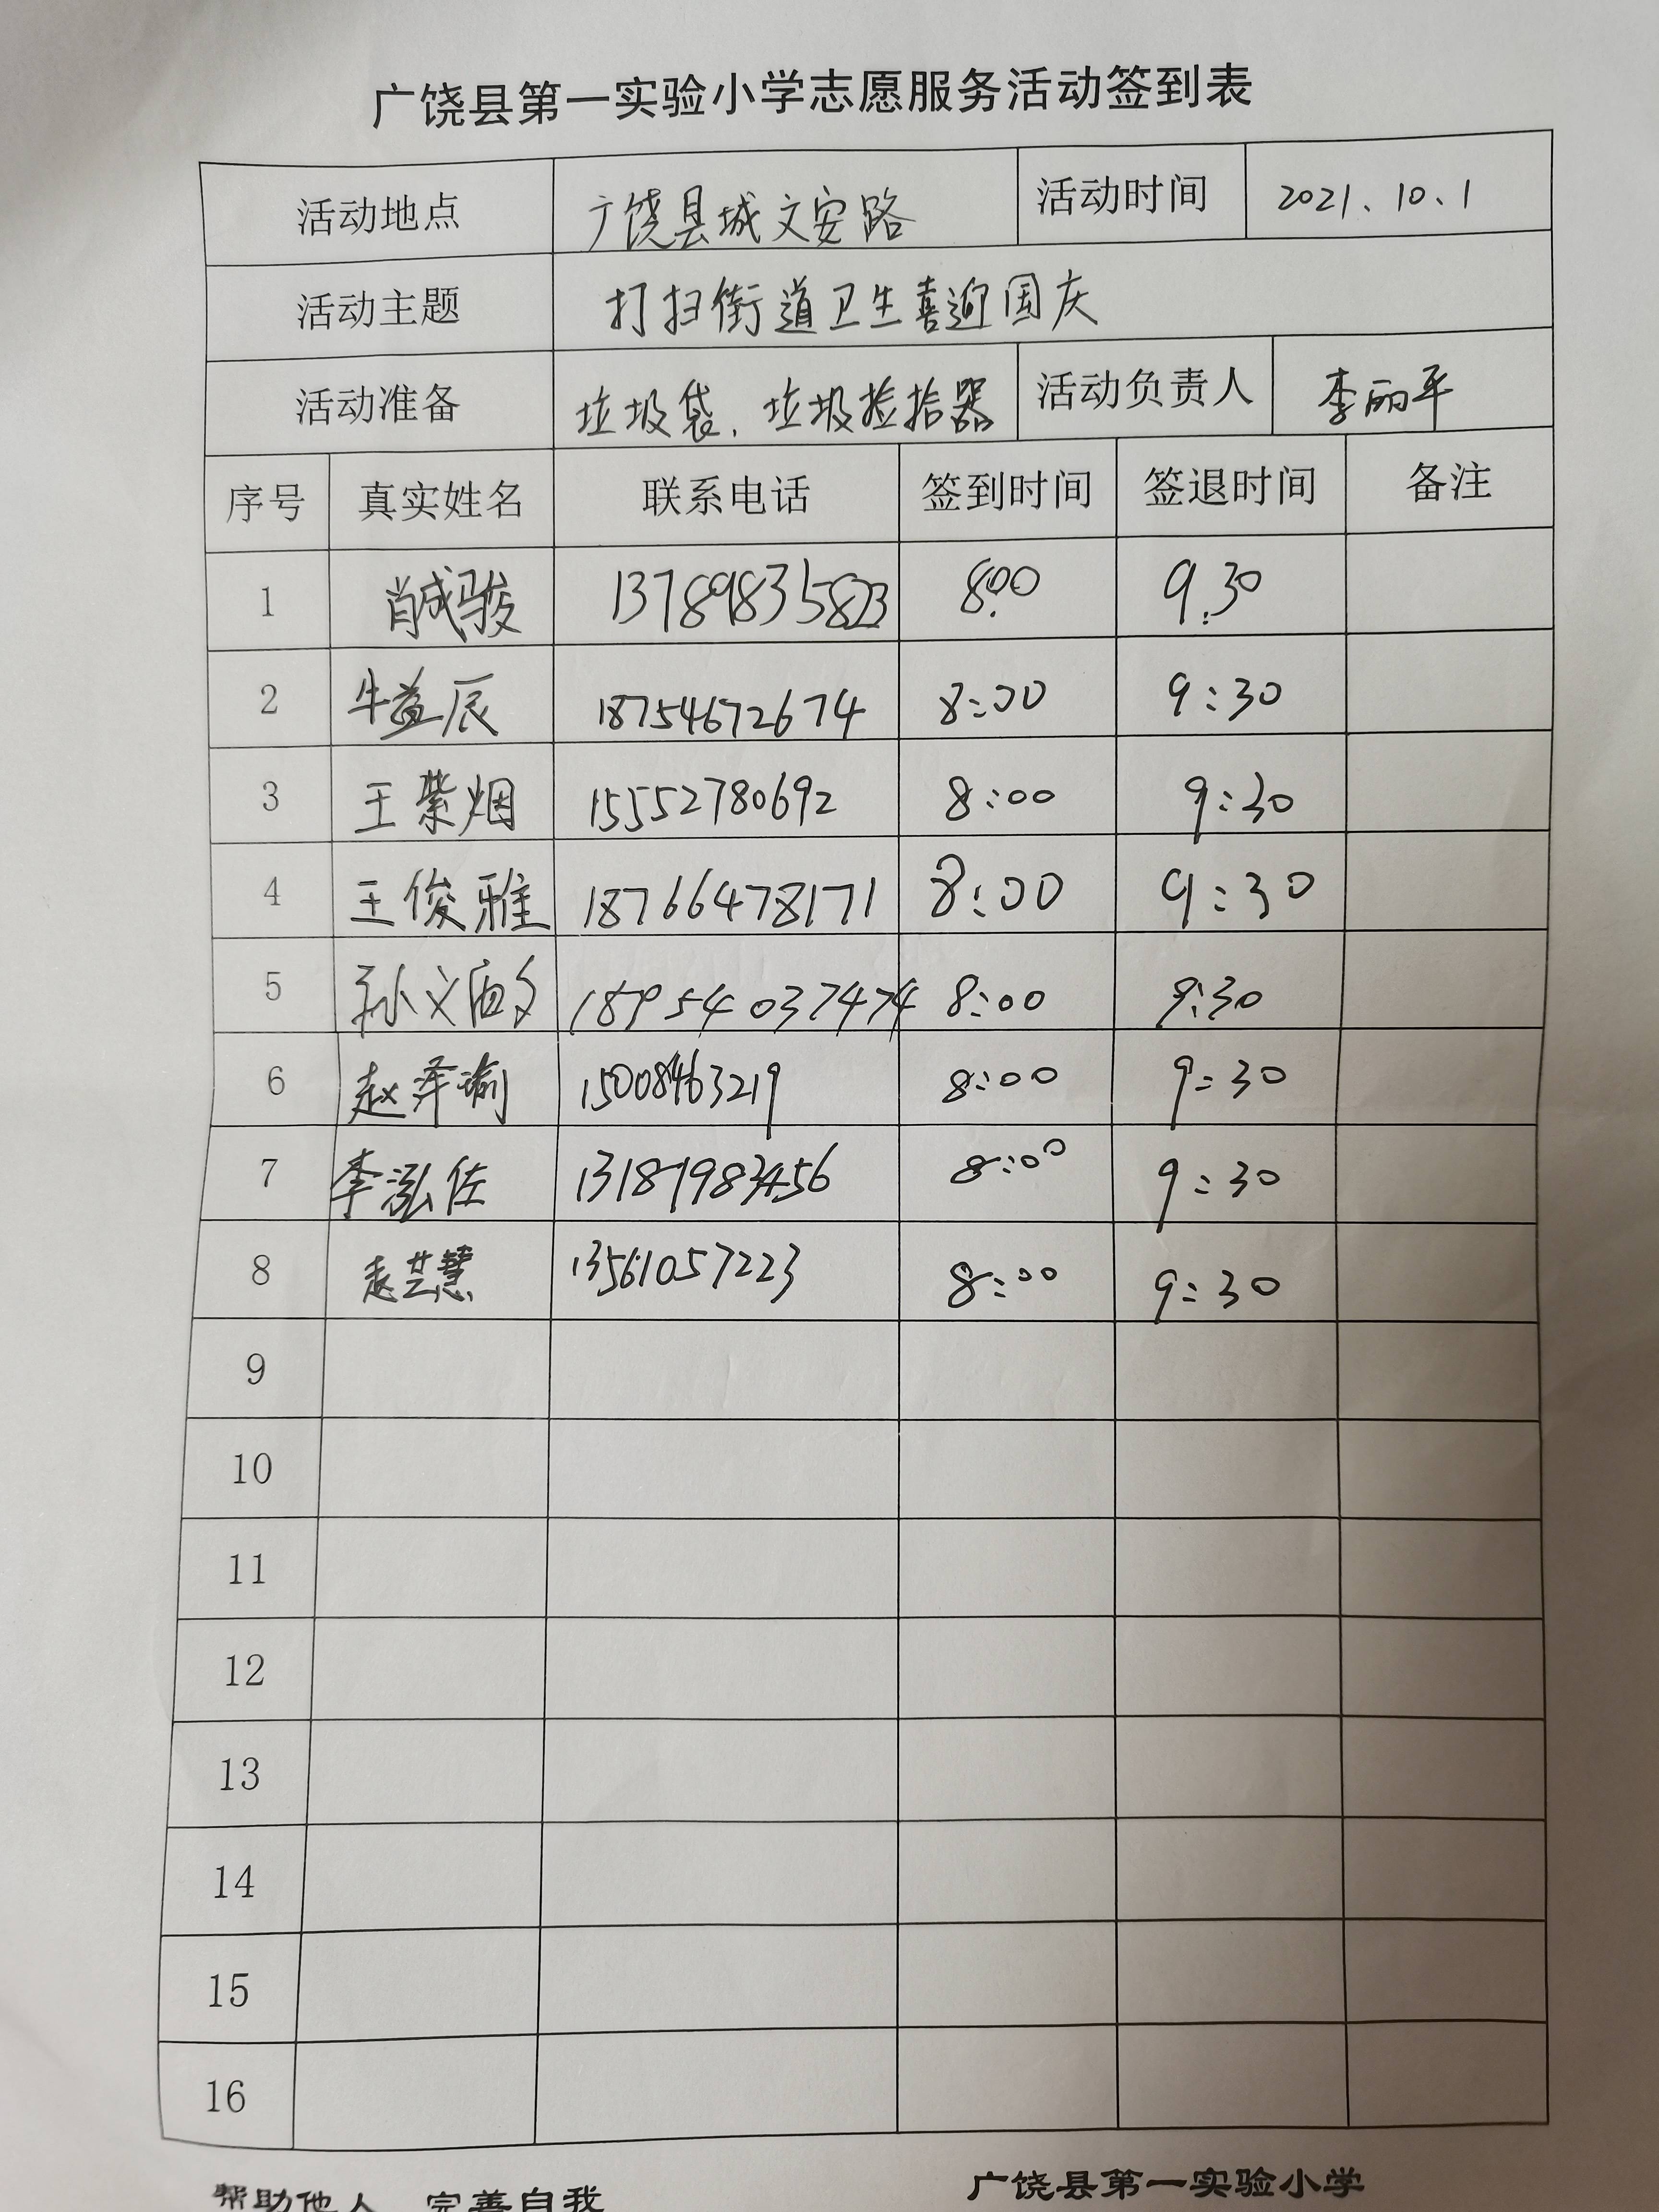 广饶县第一实验小学志愿服务活动签到表
活动地点 广饶县城文安路 活动时间 2021、10、1
活动主题 打扫街道卫生喜迎国庆
活动准备 垃圾袋、垃圾捡拾器 活动负责人 李丽平
序号 真实姓名 联系电话 签到时间 签退时间 备注
1 肖成骏 13789835823 8:00 9:30
2 牛益辰 18754672674 8:00 9:30
3 王紫烟 15552780692 8:00 9:30
4 王俊雅 18766478171 8:00 9:30
5 孙文 18954037474 8:00 9:30
6 赵泽瑜 15008463219 8:00 9:30
7 李泓佐 13181983456 8:00 9:30
8 袁芸慧 13561057223 8:00 9:30
9
10
11
12
13
14
15
16
帮助他人 完善自我 广饶县第一实验小学